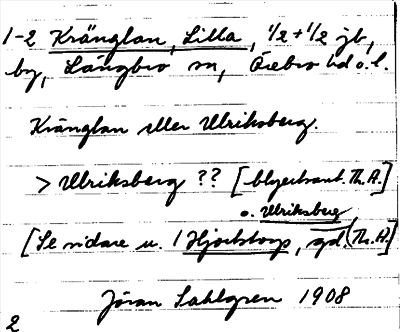 1-2 Kränglan, Lilla, 1/2 + 1/2 jb,
by, Längbro sn, Örebro hd o. l.
Kränglan eller Ulriksberg.
> Ulriksberg ?? [blyertsant. Th. A.]
o. Ulriksberg
[Se vidare u. 1 Hjortstorp, gd (Th. A.)]
Jöran Sahlgren 1908
2